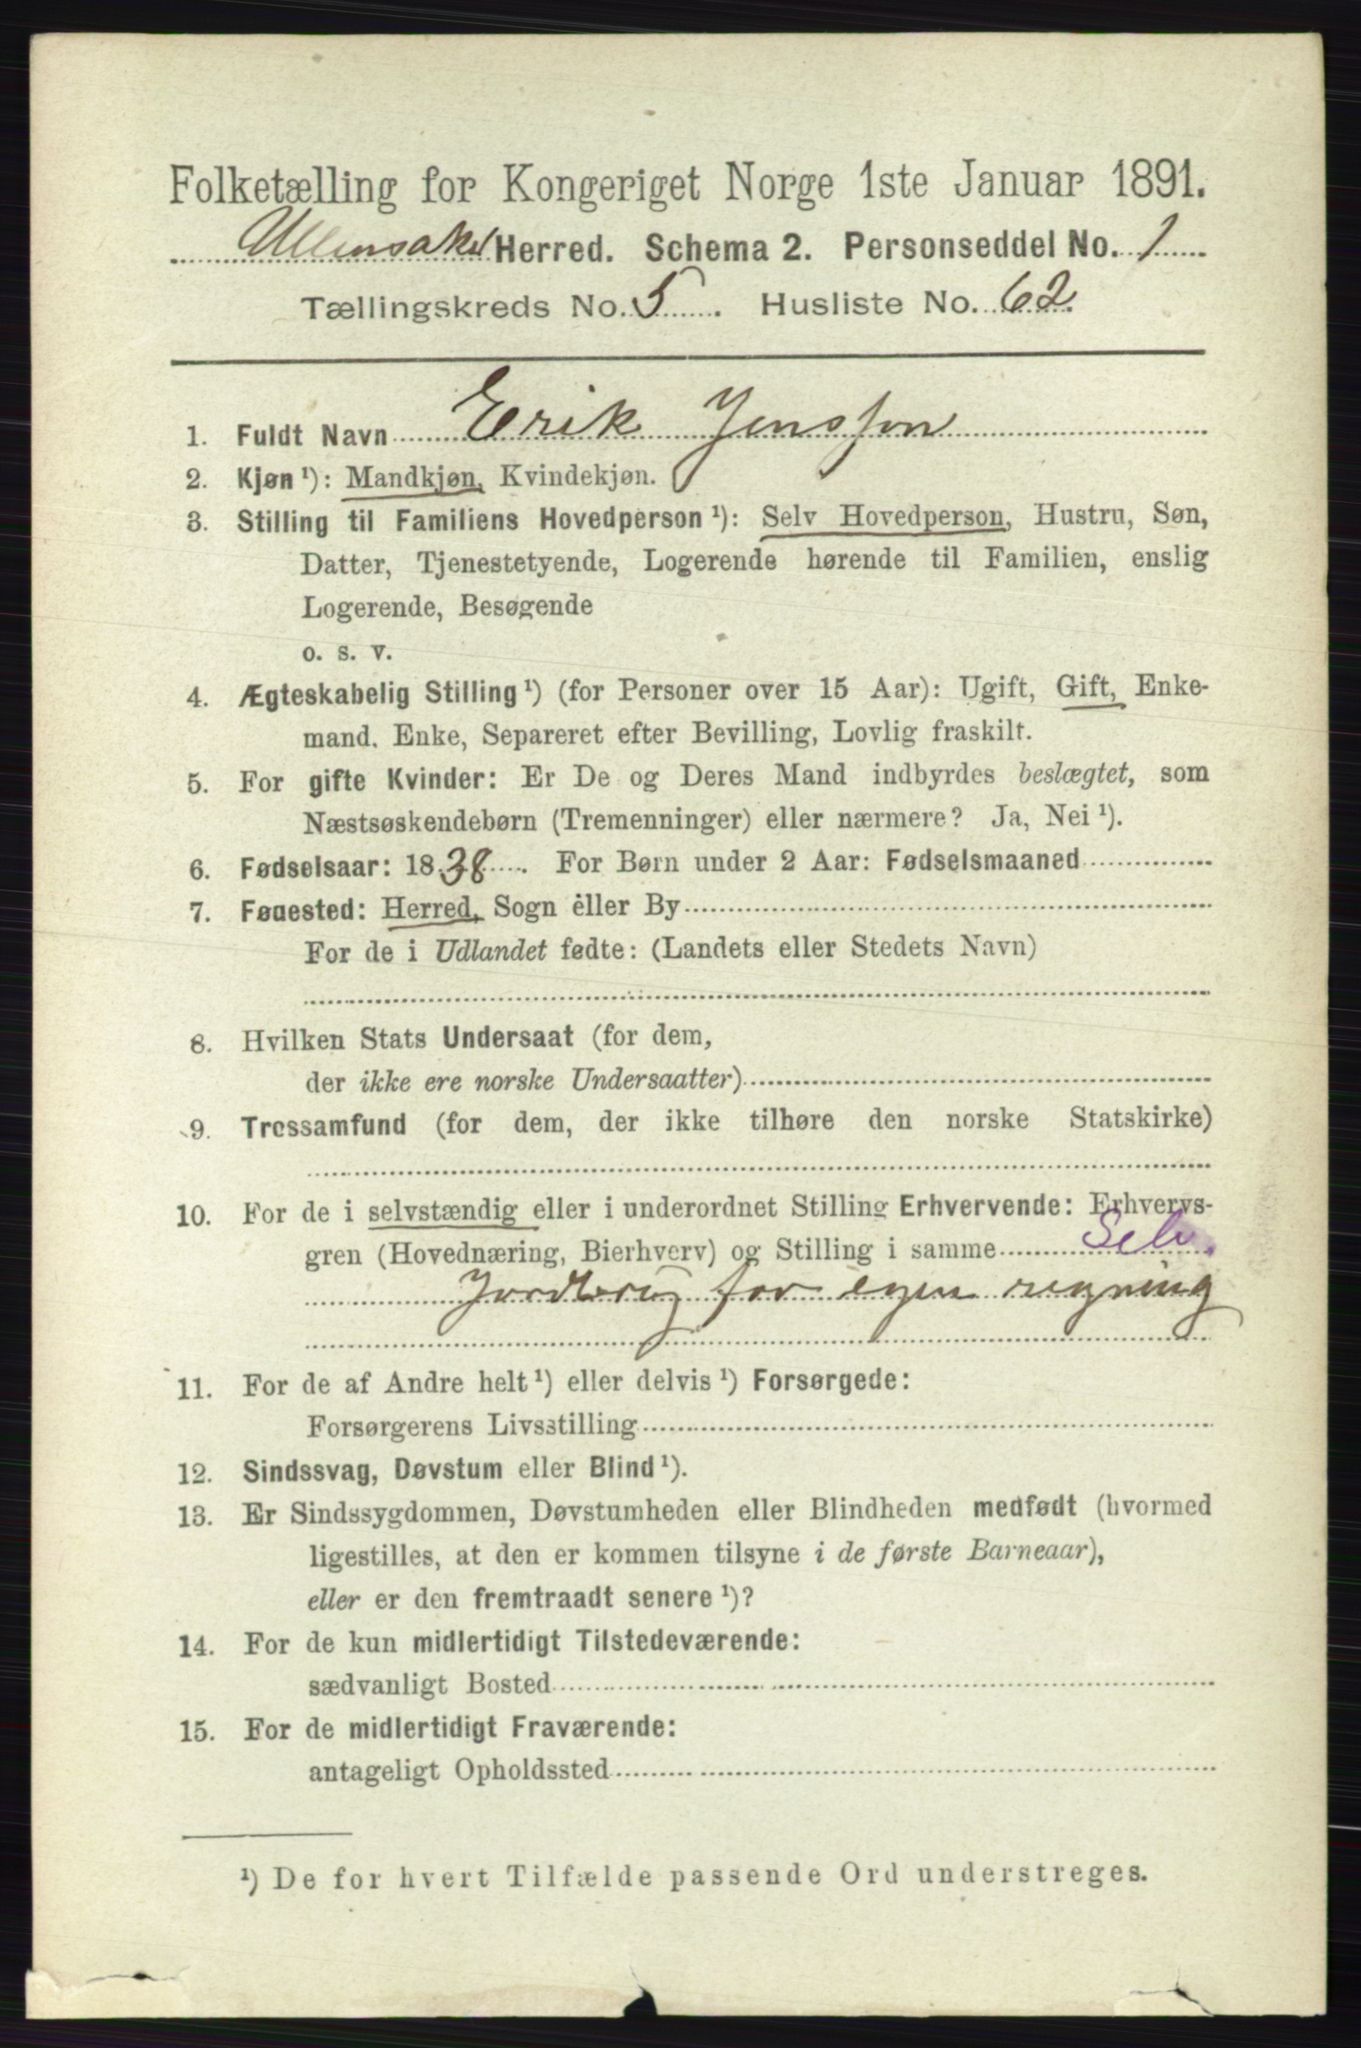 Folketælling for Kongeriget Norge 1ste Januar 1891.
Ullensaker Herred. Schema 2. Personseddel No. 1
Tællingskreds No. 5. Husliste No. 62.
1. Fuldt Navn Erik Jensson
2. Kjøn ¹): Mandkjøn, Kvindekjøn.
3. Stilling til Familiens Hovedperson ¹): Selv Hovedperson, Hustru, Søn,
Datter, Tjenestetyende, Logerende hørende til Familien, enslig
Logerende, Besøgende
o. s. v.
4. Ægteskabelig Stilling ¹) (for Personer over 15 Aar): Ugift, Gift, Enke-
mand, Enke, Separeret efter Bevilling, Lovlig fraskilt.
5. For gifte Kvinder: Er De og Deres Mand indbyrdes beslægtet, som
Næstsøskendebørn (Tremenninger) eller nærmere? Ja, Nei ¹).
6. Fødselsaar: 1838. For Børn under 2 Aar: Fødselsmaaned
7. Fødested: Herred, Sogn eller By
For de i Udlandet fødte: (Landets eller Stedets Navn)
8. Hvilken Stats Undersaat (for dem,
der ikke ere norske Undersaatter)
9. Trossamfund (for dem, der ikke tilhøre den norske Statskirke)
10. For de i selvstændig eller i underordnet Stilling Erhvervende: Erhvervs-
gren (Hovednæring, Bierhverv) og Stilling i samme Selv.
Jordbrug for egen regning
11. For de af Andre helt ¹) eller delvis ¹) Forsørgede:
Forsørgerens Livsstilling
12. Sindssvag, Døvstum eller Blind ¹).
13. Er Sindssygdommen, Døvstumheden eller Blindheden medfødt (hvormed
ligestilles, at den er kommen tilsyne i de første Barneaar),
eller er den fremtraadt senere ¹)?
14. For de kun midlertidigt Tilstedeværende:
sædvanligt Bosted
15. For de midlertidigt Fraværende:
antageligt Opholdssted
¹) De for hvert Tilfælde passende Ord understreges.